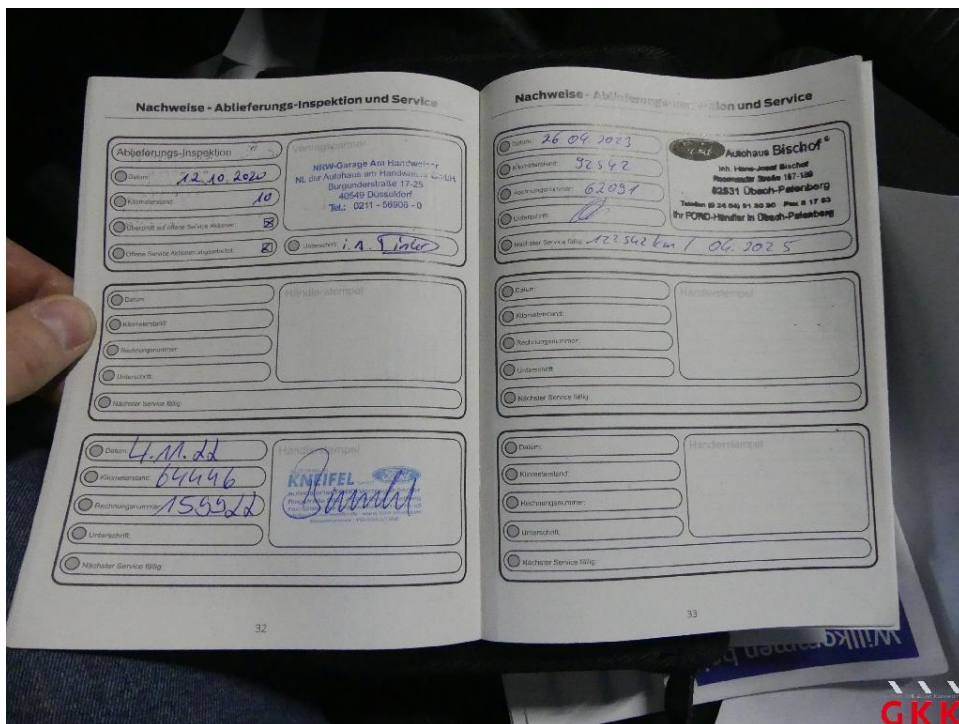 Nachweise - Ablieferungs-Inspektion und Service
Ablieferungs-Inspektion
Datum: 12.10.2020
Kilometerstand: 10
Überprüft auf offene Service Aktionen: ☒
Offene Service Aktionen abgearbeitet: ☒
Vertragspartner
NRW-Garage Am Handweiser
NL der Autohaus am Handweiser GmbH
Burgunderstraße 17-25
40549 Düsseldorf
Tel.: 0211 - 56906 - 0
Unterschrift: i.A.
Datum:
Kilometerstand:
Rechnungsnummer:
Unterschrift:
Nächster Service fällig:
Händlerstempel
Datum: 4.11.22
Kilometerstand: 64446
Rechnungsnummer: 159922
Unterschrift:
Nächster Service fällig:
Händlerstempel
KNEIFEL
32
Nachweise - Ablieferungs-Inspektion und Service
Datum: 26.04.2023
Kilometerstand: 92542
Rechnungsnummer: 62091
Unterschrift:
Nächster Service fällig: 122542 km / 04.2025
Autohaus Bischof
Inh. Hans-Josef Bischof
52531 Übach-Palenberg
Ihr FORD-Händler in Übach-Palenberg
Datum:
Kilometerstand:
Rechnungsnummer:
Unterschrift:
Nächster Service fällig:
Händlerstempel
Datum:
Kilometerstand:
Rechnungsnummer:
Unterschrift:
Nächster Service fällig:
Händlerstempel
33
Willkommen bei
GKK